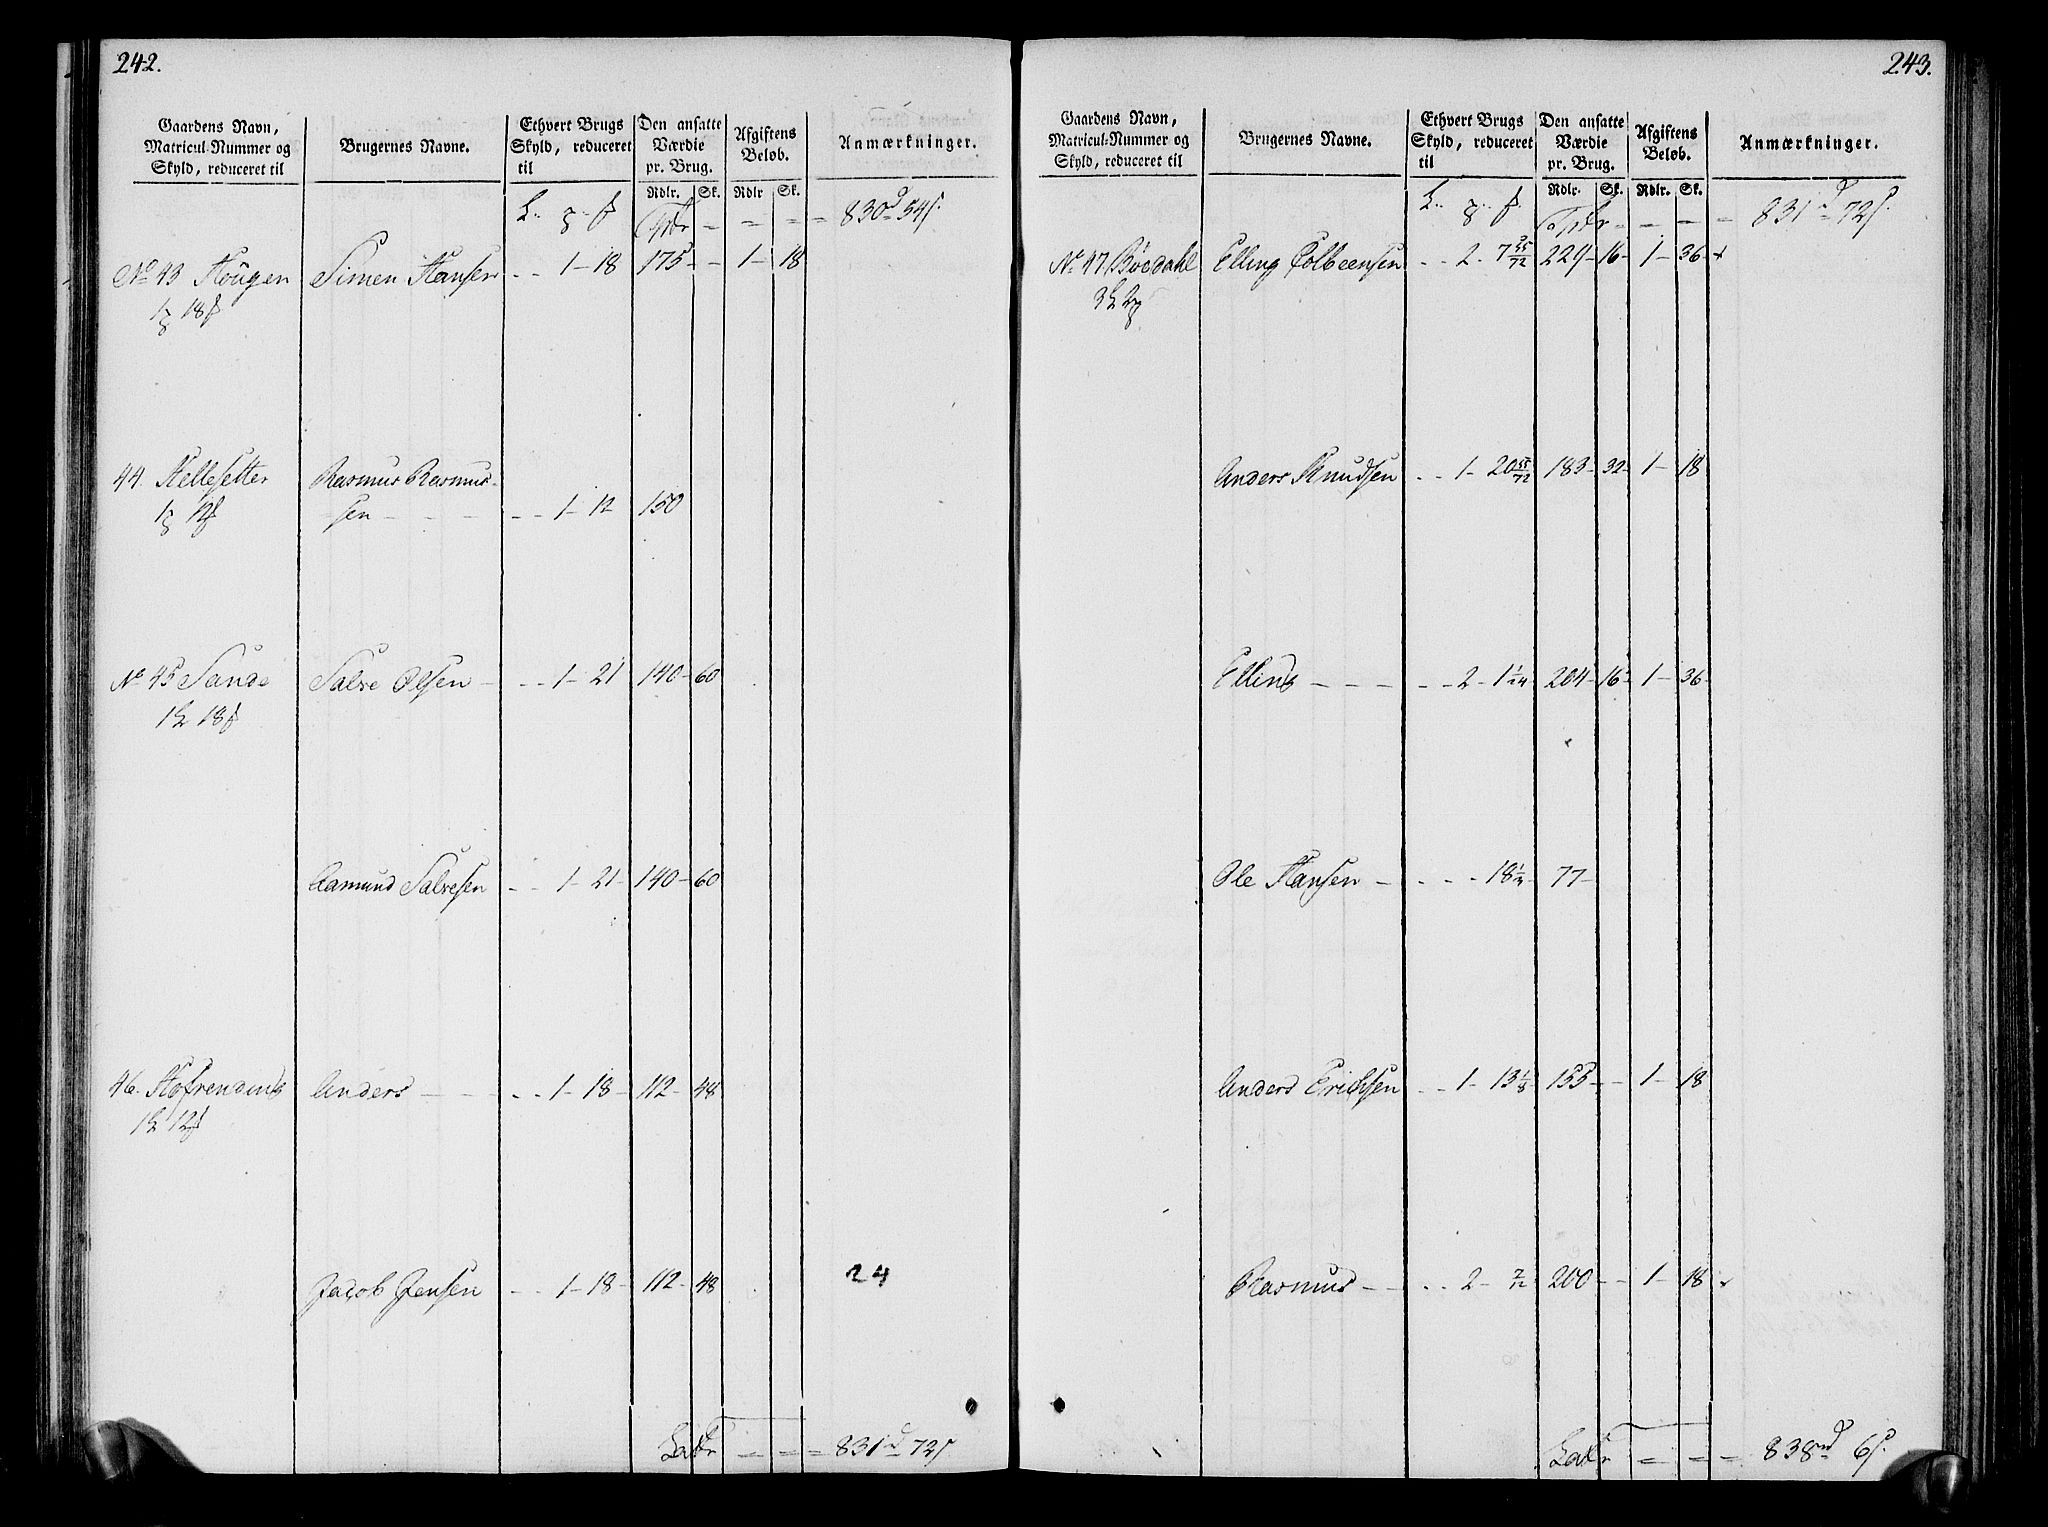 242.
Gaardens Navn, Matricul-Nummer og Skyld, reduceret til | Brugernes Navne. | Ethvert Brugs Skyld, reduceret til | Den ansatte Værdie pr. Brug. | Afgiftens Beløb. | Anmærkninger.
Rdlr. Sk. Rdlr Sk.
830 54
No 43 Hougen Simen Hansen - - 1 - 18 175 - - 1 - 18
1 18
44. Hellesetter Rasmus Rasmus-
1 12 sen - - - - - 1 - 12 150
No 45 Sande Salve Olsen - - - 1 - 21 140 - 60
1 18
Aamund Salvesen - - 1 - 21 - 140 - 60
46. Anders - - - - 1 - 18 - 112 - 48
1 12
Jacob Jensen - - 1 - 18 - 112 - 48 24
Latr = = = 831 72
243.
Gaardens Navn, Matricul-Nummer og Skyld, reduceret til | Brugernes Navne. | Ethvert Brugs Skyld, reduceret til | Den ansatte Værdie pr. Brug. | Afgiftens Beløb. | Anmærkninger.
Rdlr. Sk. Rdlr. Sk.
831 72
No 47 Bøedahl Elling - - 2 - 7 35/72 229 - 16 - 1 - 36
3 2
Anders Knudsen - - 1 - 20 55/72 183 - 32 - 1 - 18
Elling - - - - - 2 - 1 1/24 204 - 16 - 1 - 36 -
Ole Hansen - - - - 18 77 -
Anders Erichsen - - 1 - 13 1/8 155 - - 1 - 18
Rasmus - - - - 2 - 7/12 200 - - 1 - 18
Latr = = = = 838 6